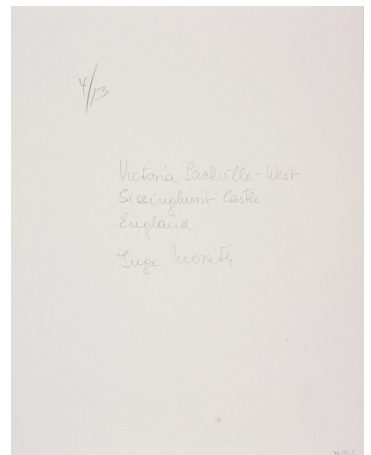 4/13
Victoria Sackville-West
Sissinghurst Castle
England
Inge Morath